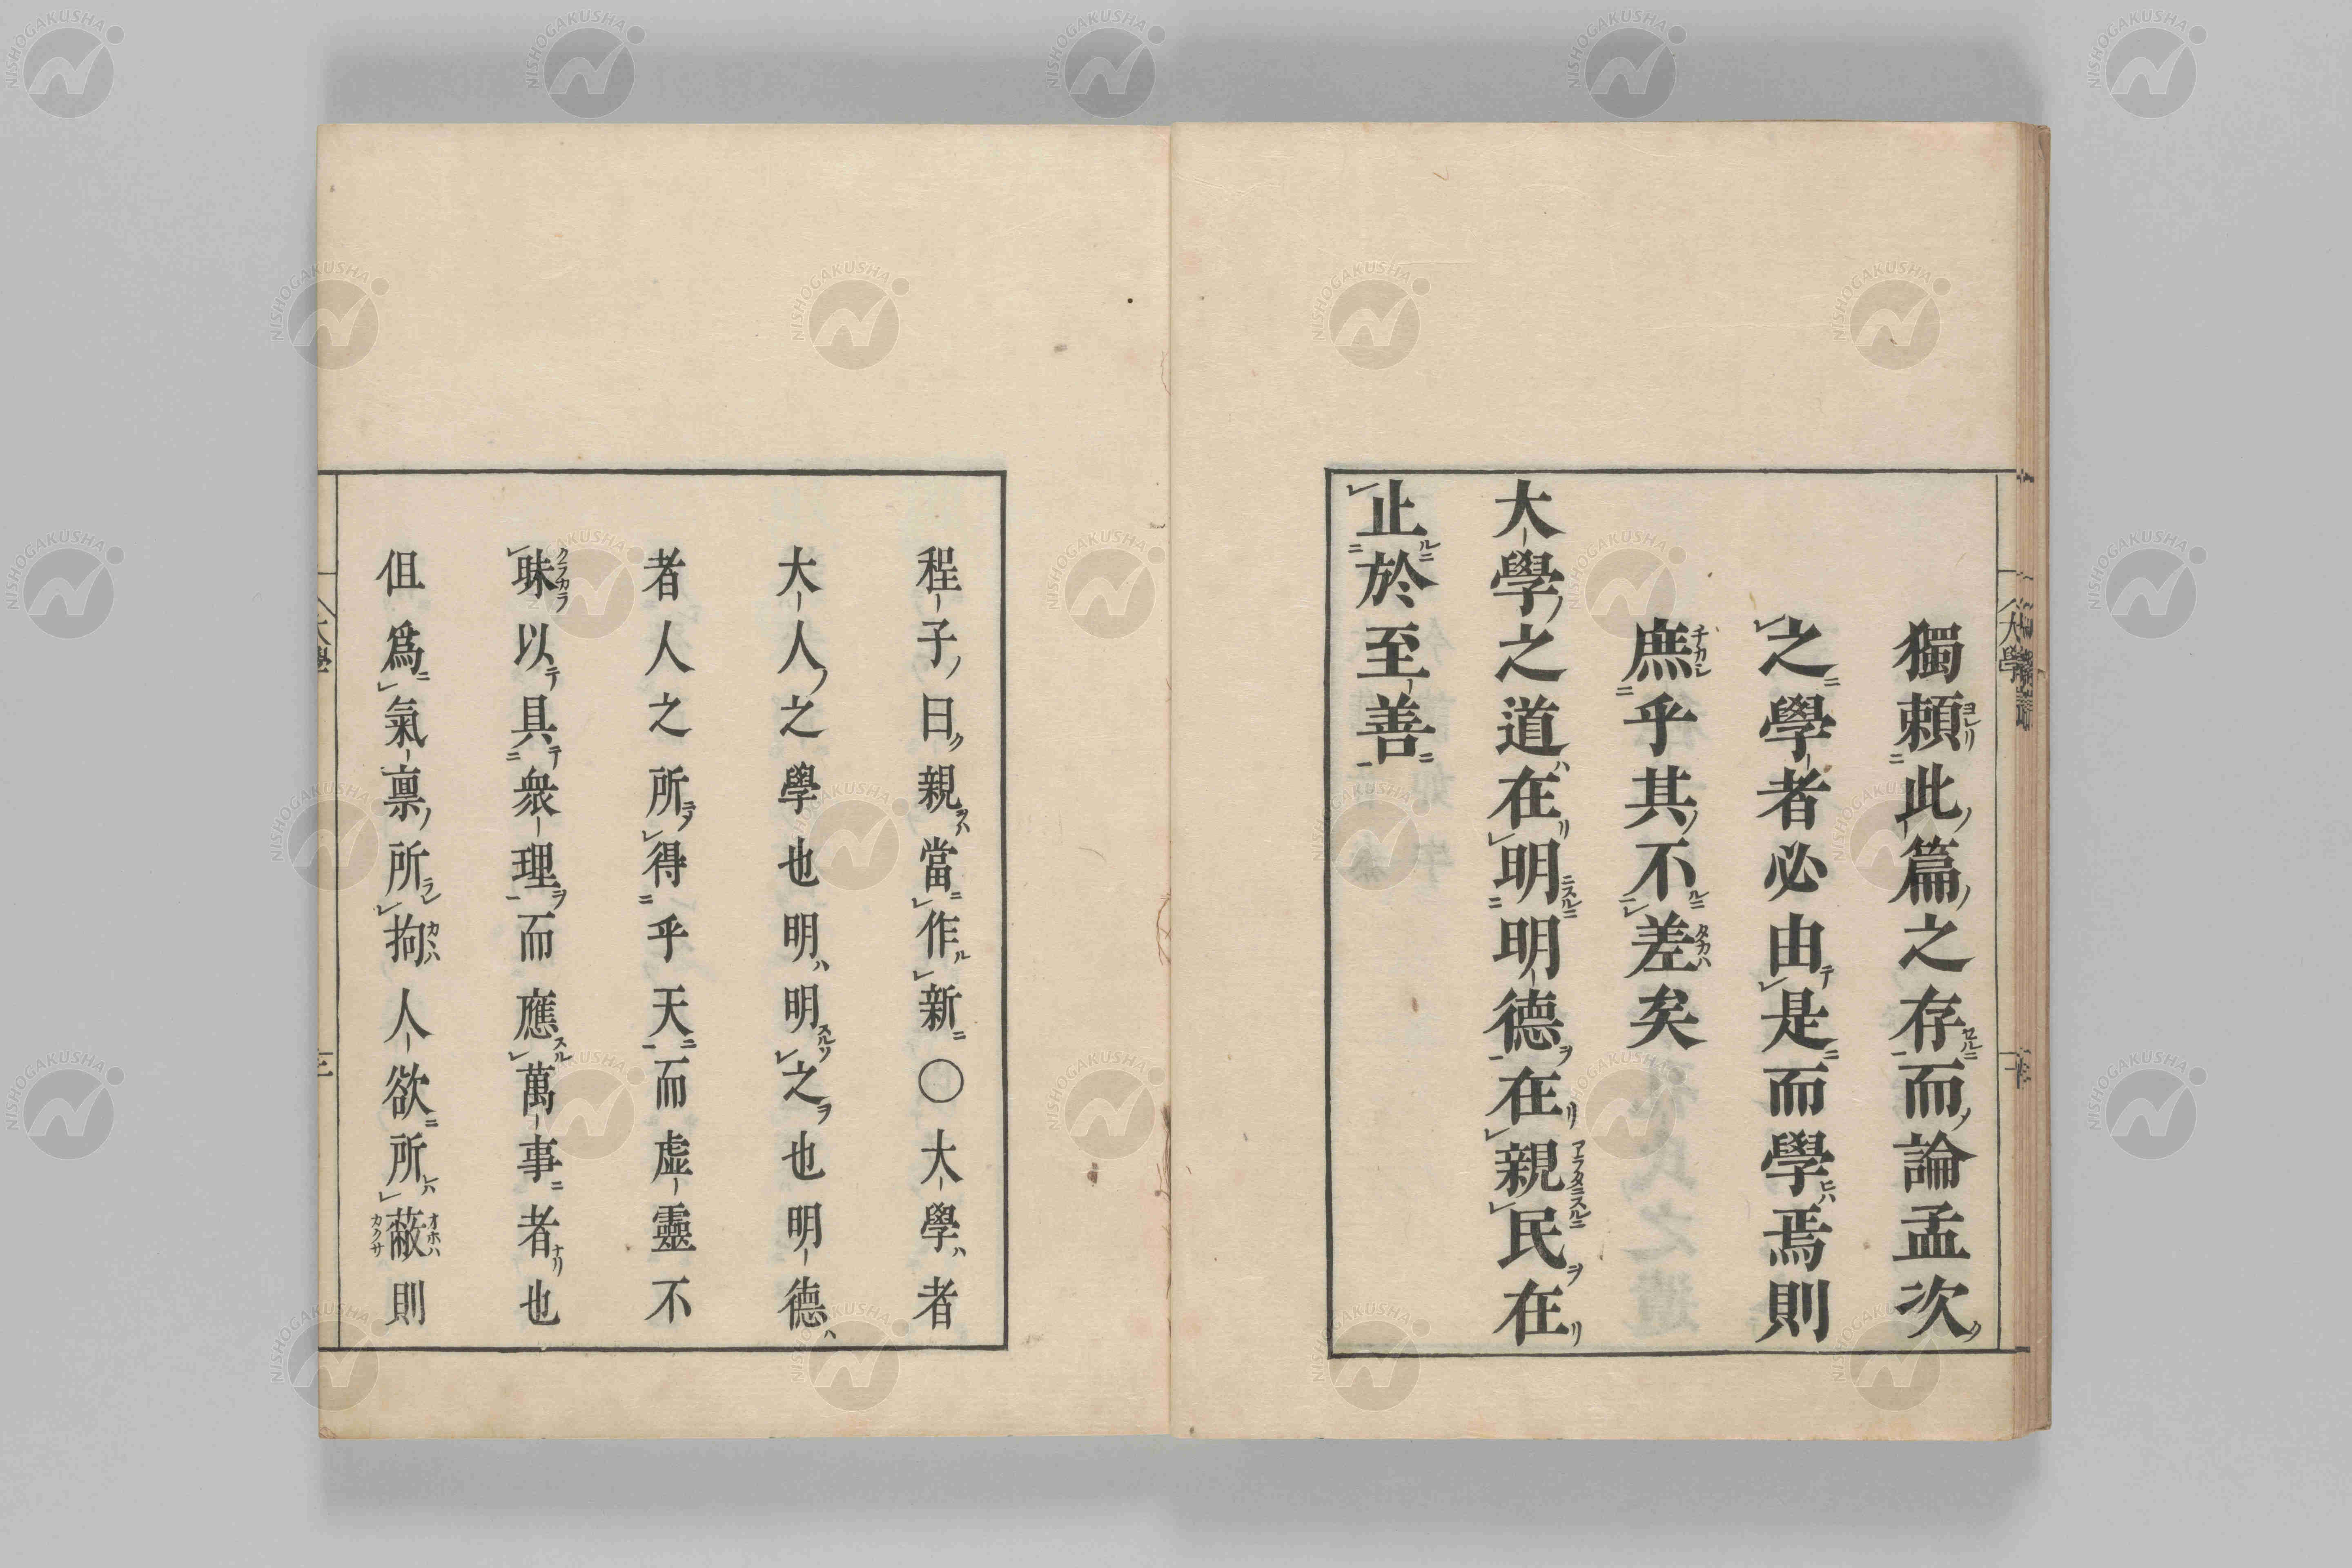 獨頼此篇之存而論孟次
之學者必由是而學焉則
庶乎其不差矣
大學之道在明明德在親民在
止於至善
程子曰親當作新○大學者
大人之學也明明之也明德
者人之所得乎天而虛靈不
昧以具衆理而應萬事者也
但爲氣禀所拘人欲所蔽則
大學
三
NISHOGAKUSHA